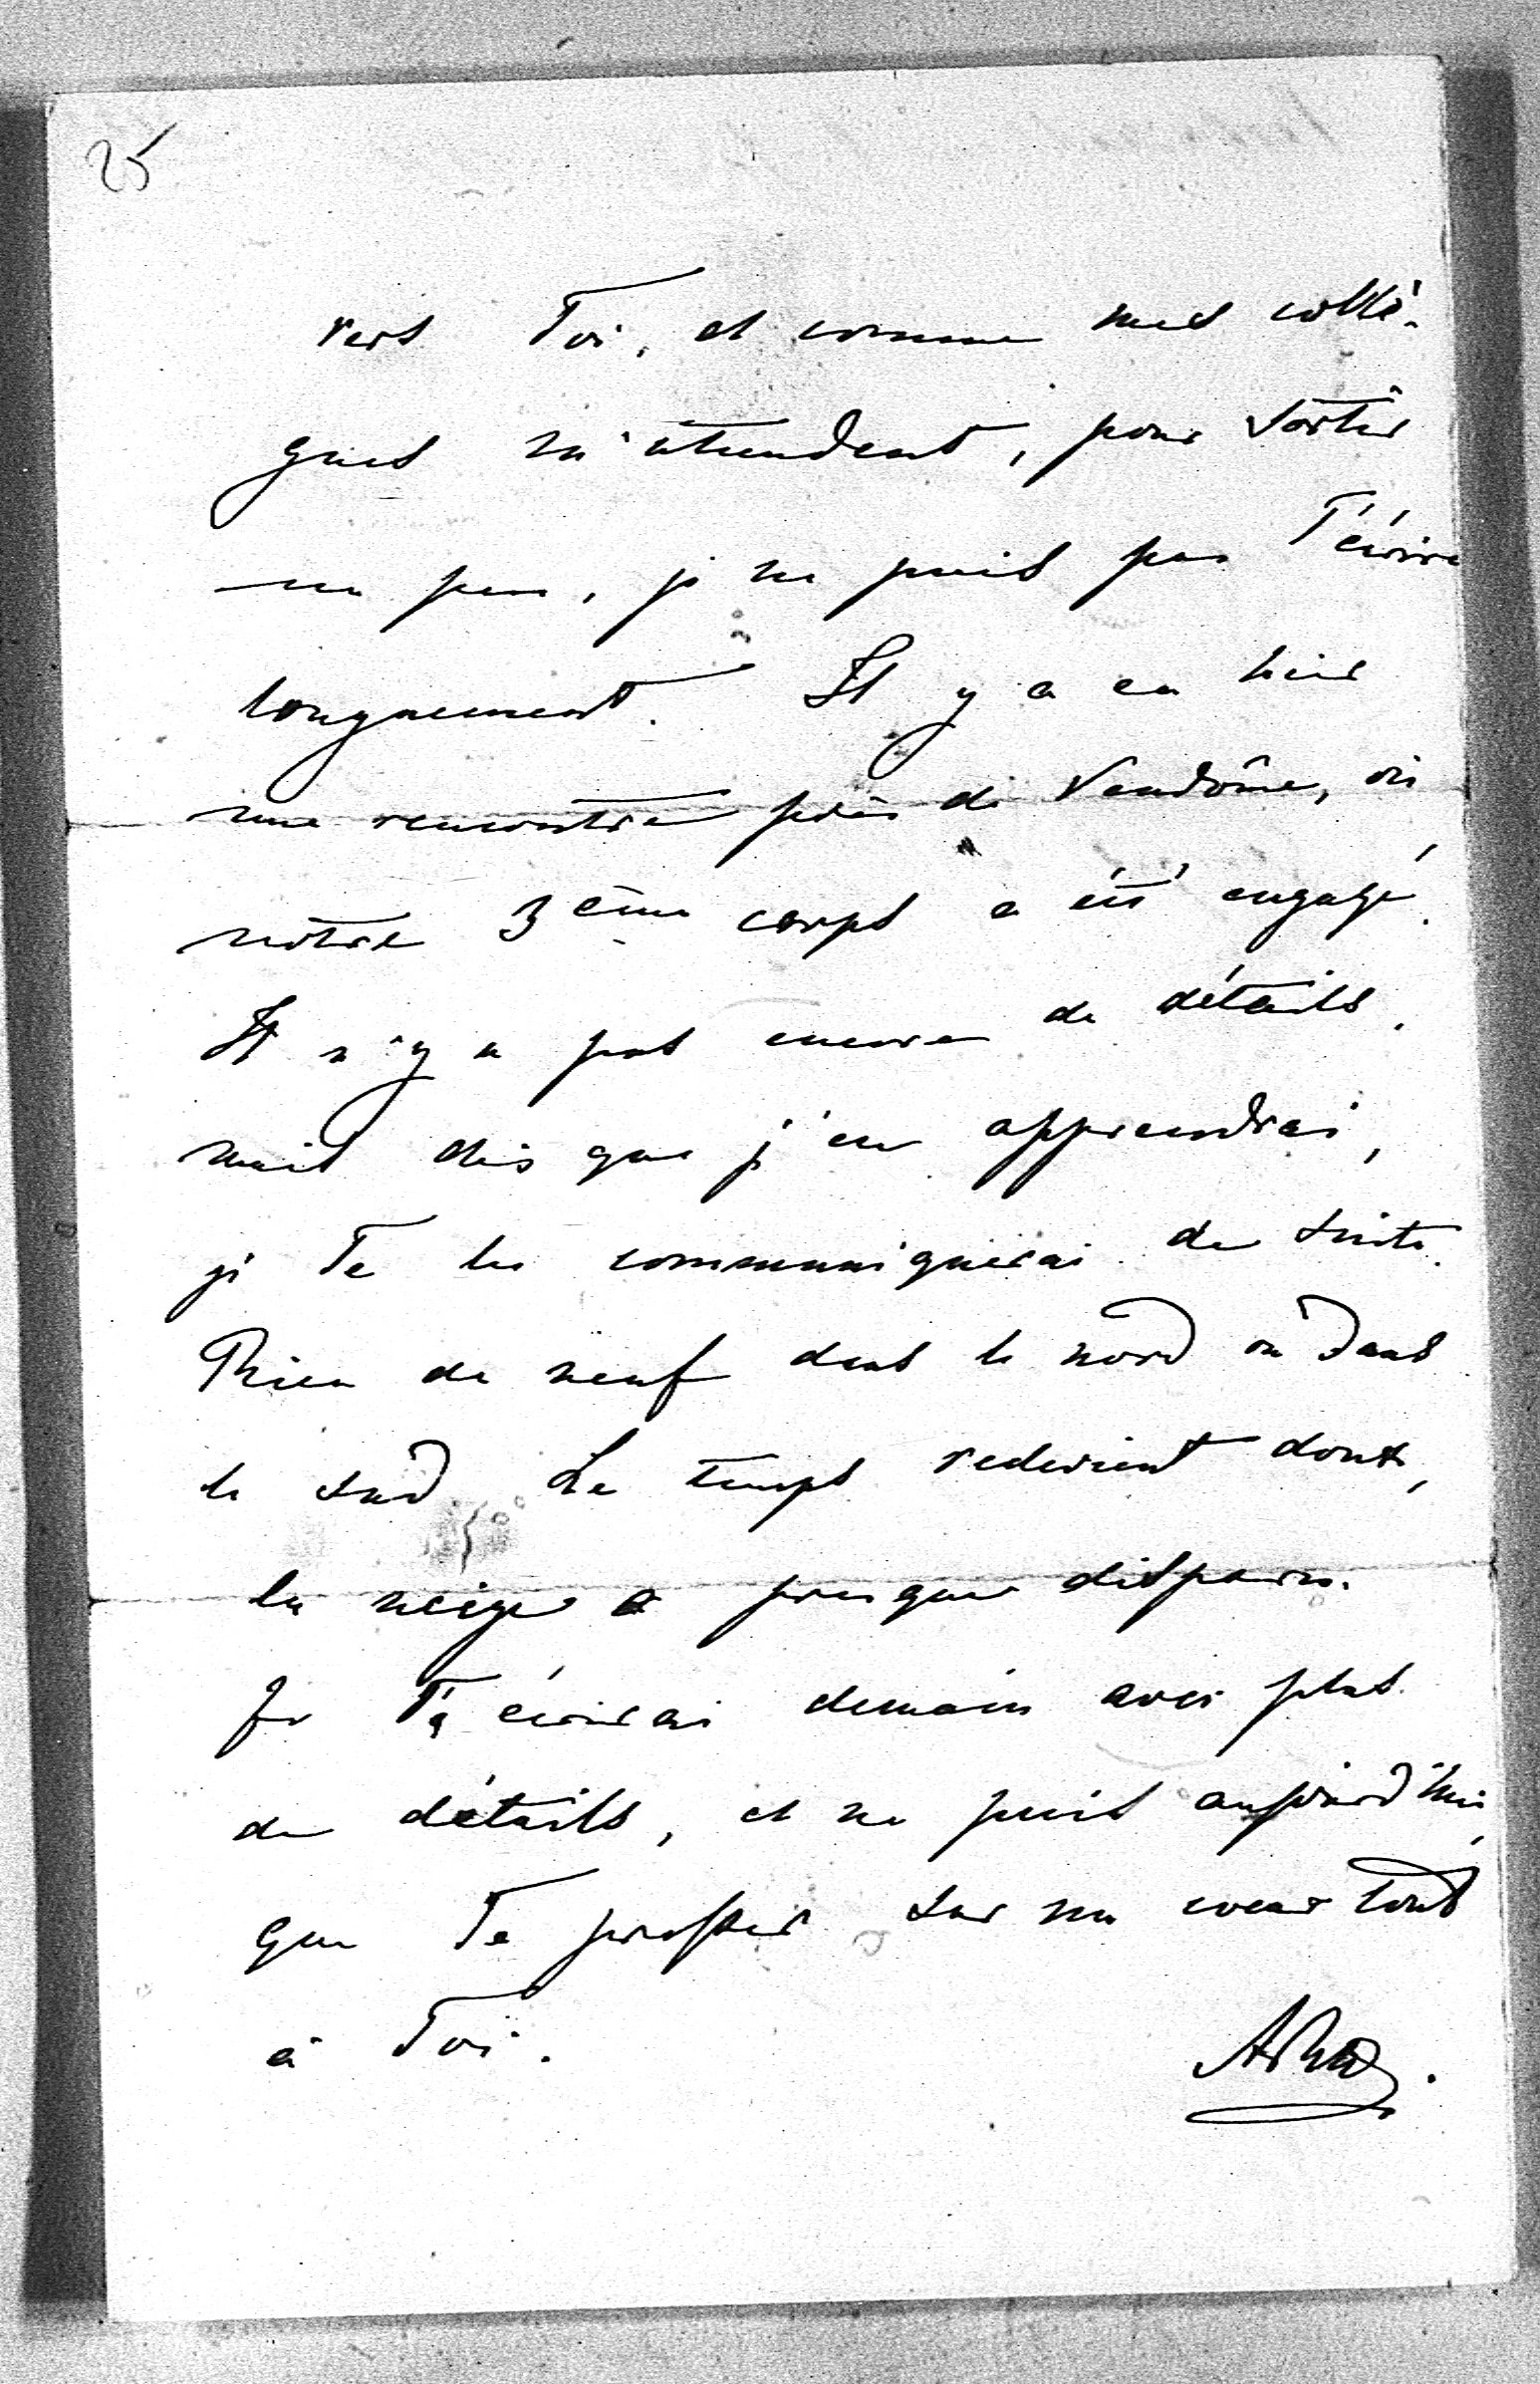 25
vers Toi, et comme mes collè-
gues m'attendent, pour sortir
un peu, je ne puis pas T'écrire
longuement. Il y a eu hier
une rencontre près de Vendôme, où
notre 3ème corps a été engagé.
Il n'y a pas encore de détails,
mais dès que j'en apprendrai,
je Te les communiquerai de suite.
Rien de neuf dans le nord ou dans
le sud. Le temps redevient doux,
la neige a presque disparu.
Je T'écrirai demain avec plus
de détails, et ne puis aujourd'hui,
que Te presser sur mon coeur tout
à Toi.